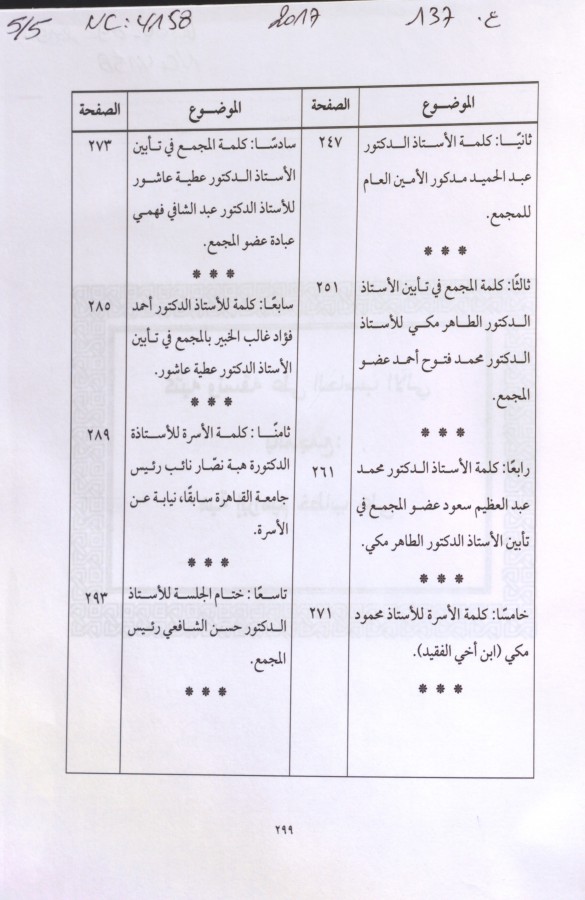 5/5 NC: 4158 2017 ع. 137
الموضـوع الصفحة
ثانيًـا: كلمة الأسـتاذ الـدكتور ٢٤٧
عبد الحميد مدكور الأمين العام
للمجمع.
* * *
ثالثًا: كلمة المجمع في تأبين الأستاذ ٢٥١
الـدكتور الطـاهر مكـي للأسـتاذ
الدكتور محمد فتوح أحمد عضـو
المجمع.
* * *
رابعًا: كلمة الأستاذ الـدكتور محمـد ٢٦١
عبد العظيم سعود عضـو المجمع في
تأبين الأستاذ الدكتور الطاهر مكي.
* * *
خامسًا: كلمة الأسرة للأستاذ محمود ٢٧١
مكي (ابن أخي الفقيد).
* * *
الموضـوع الصفحة
سادسًـا: كلمـة المجمـع في تـأبين ٢٧٣
الأسـتاذ الـدكتور عطيـة عاشـور
للأستاذ الدكتور عبد الشافي فهمـي
عبادة عضو المجمع.
* * *
سابعًـا: كلمة للأستاذ الدكتور أحمد ٢٨٥
فؤاد غالب الخبير بالمجمع في تـأبين
الأستاذ الدكتور عطية عاشور.
* * *
ثامنًـا: كلمـة الأسرة للأسـتاذة ٢٨٩
الدكتورة هبـة نصّـار نائـب رئـيس
جامعـة القاهـرة سـابقًا، نيابة عـن
الأسرة.
* * *
تاسعًـا: ختـام الجلسـة للأسـتاذ ٢٩٣
الـدكتور حسـن الشـافعي رئـيس
المجمع.
* * *
٢٩٩